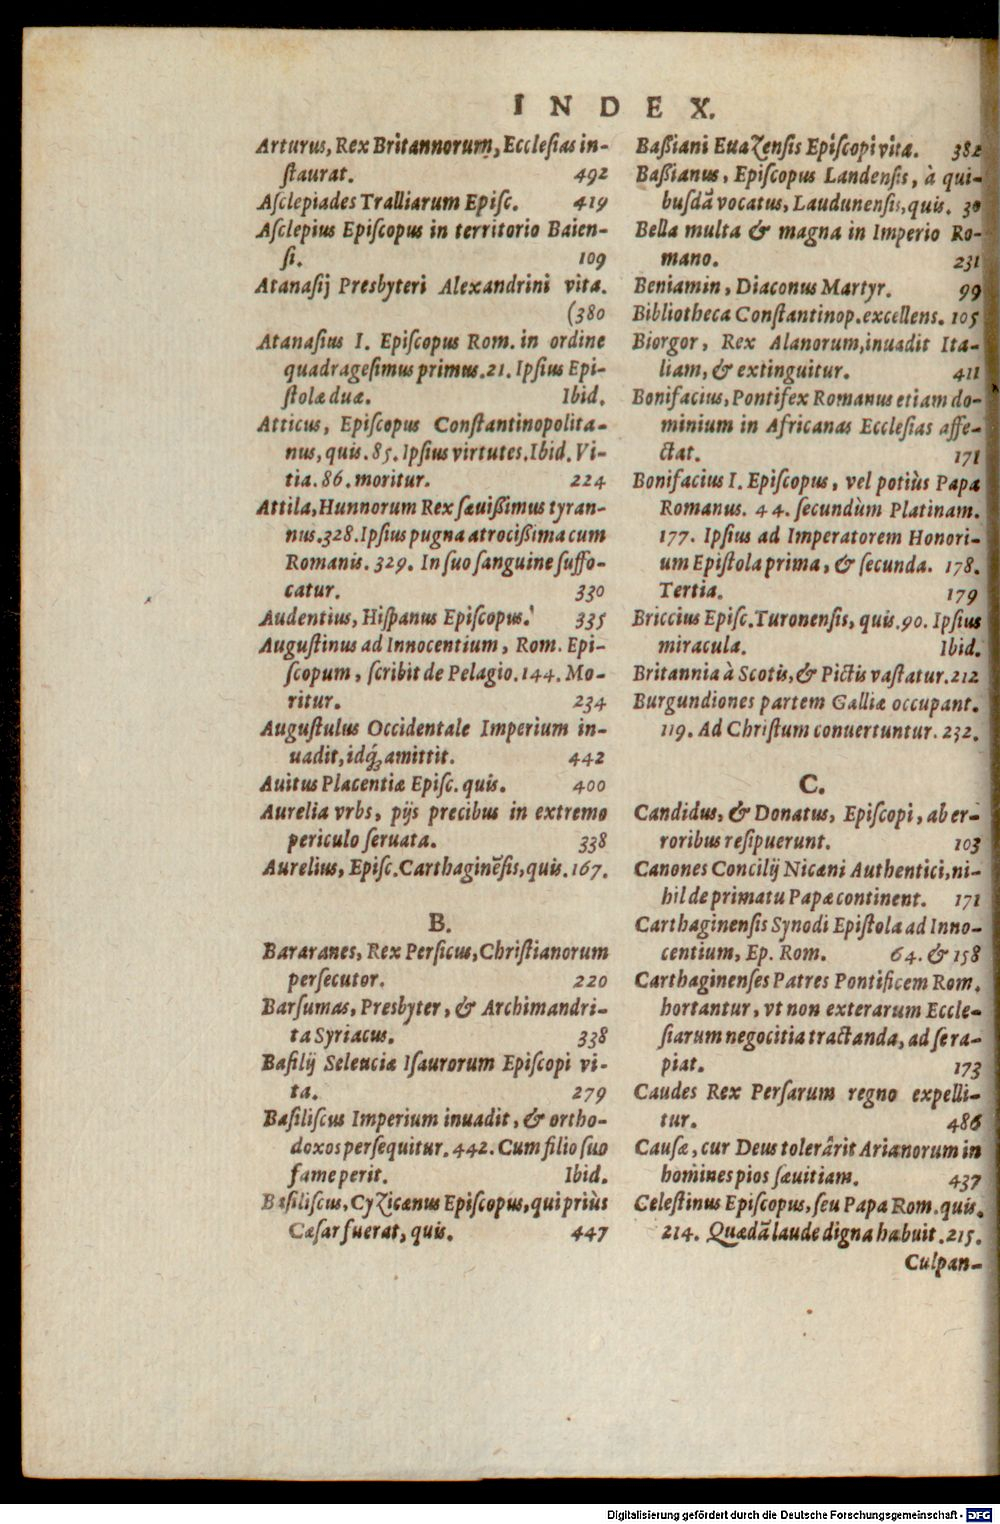 INDEX.
Arturus, Rex Britannorum, Ecclesias in-
ſtaurat. 492
Aſclepiades Tralliarum Epiſc. 419
Aſclepius Epiſcopus in territorio Baien-
ſi. 109
Atanaſij Presbyteri Alexandrini vita.
(380
Atanaſius I. Epiſcopus Rom. in ordine
quadrageſimus primus. 21. Ipſius Epi-
ſtolæ duæ. Ibid.
Atticus, Epiſcopus Conſtantinopolita-
nus, quis. 85. Ipſius virtutes. Ibid. Vi-
tia. 86. moritur. 224
Attila, Hunnorum Rex ſæuißimus tyran-
nus. 328. Ipſius pugna atrocißima cum
Romanis. 329. In ſuo ſanguine ſuffo-
catur. 330
Audentius, Hiſpanus Epiſcopus. 335
Auguſtinus ad Innocentium, Rom. Epi-
ſcopum, ſcribit de Pelagio. 144. Mo-
ritur. 234
Auguſtulus Occidentale Imperium in-
uadit, idq́; amittit. 442
Auitus Placentiæ Epiſc. quis. 400
Aurelia vrbs, pijs precibus in extremo
periculo ſeruata. 338
Aurelius, Epiſc. Carthaginẽſis, quis. 167.
B.
Bararanes, Rex Perſicus, Chriſtianorum
perſecutor. 220
Barſumas, Presbyter, & Archimandri-
ta Syriacus. 338
Baſilij Seleuciæ Iſaurorum Epiſcopi vi-
ta. 279
Baſiliſcus Imperium inuadit, & ortho-
doxos perſequitur. 442. Cum filio ſuo
fame perit. Ibid.
Baſiliſcus, Cyzicænus Epiſcopus, qui priùs
Cæſar fuerat, quis. 447
Baßiani Euazenſis Epiſcopi vita. 382
Baßianus, Epiſcopus Landenſis, à qui-
buſdã vocatus, Laudunenſis, quis. 30
Bella multa & magna in Imperio Ro-
mano. 231
Beniamin, Diaconus Martyr. 99
Bibliotheca Conſtantinop. excellens. 105
Biorgor, Rex Alanorum, inuadit Ita-
liam, & extinguitur. 411
Bonifacius, Pontifex Romanus etiam do-
minium in Africanas Eccleſias affe-
ctat. 171
Bonifacius I. Epiſcopus, vel potiùs Papa
Romanus. 44. ſecundùm Platinam.
177. Ipſius ad Imperatorem Honori-
um Epiſtola prima, & ſecunda. 178.
Tertia. 179
Briccius Epiſc. Turonenſis, quis. 90. Ipſius
miracula. Ibid.
Britannia à Scotis, & Pictis vaſtatur. 212
Burgundiones partem Galliæ occupant.
119. Ad Chriſtum conuertuntur. 232.
C.
Candidus, & Donatus, Epiſcopi, ab er-
roribus reſipuerunt. 103
Canones Concilij Nicæni Authentici, ni-
hil de primatu Papæ continent. 171
Carthaginenſis Synodi Epiſtola ad Inno-
centium, Ep. Rom. 64. & 158
Carthaginenſes Patres Pontificem Rom.
hortantur, vt non exterarum Eccle-
ſiarum negocitia tractanda, ad ſe ra-
piat. 173
Caudes Rex Perſarum regno expelli-
tur. 486
Cauſæ, cur Deus tolerârit Arianorum in
homines pios ſæuitiam. 437
Celeſtinus Epiſcopus, ſeu Papa Rom. quis.
214. Quædã laude digna habuit. 215.
Culpan-
Digitalisierung gefördert durch die Deutsche Forschungsgemeinschaft - DFG